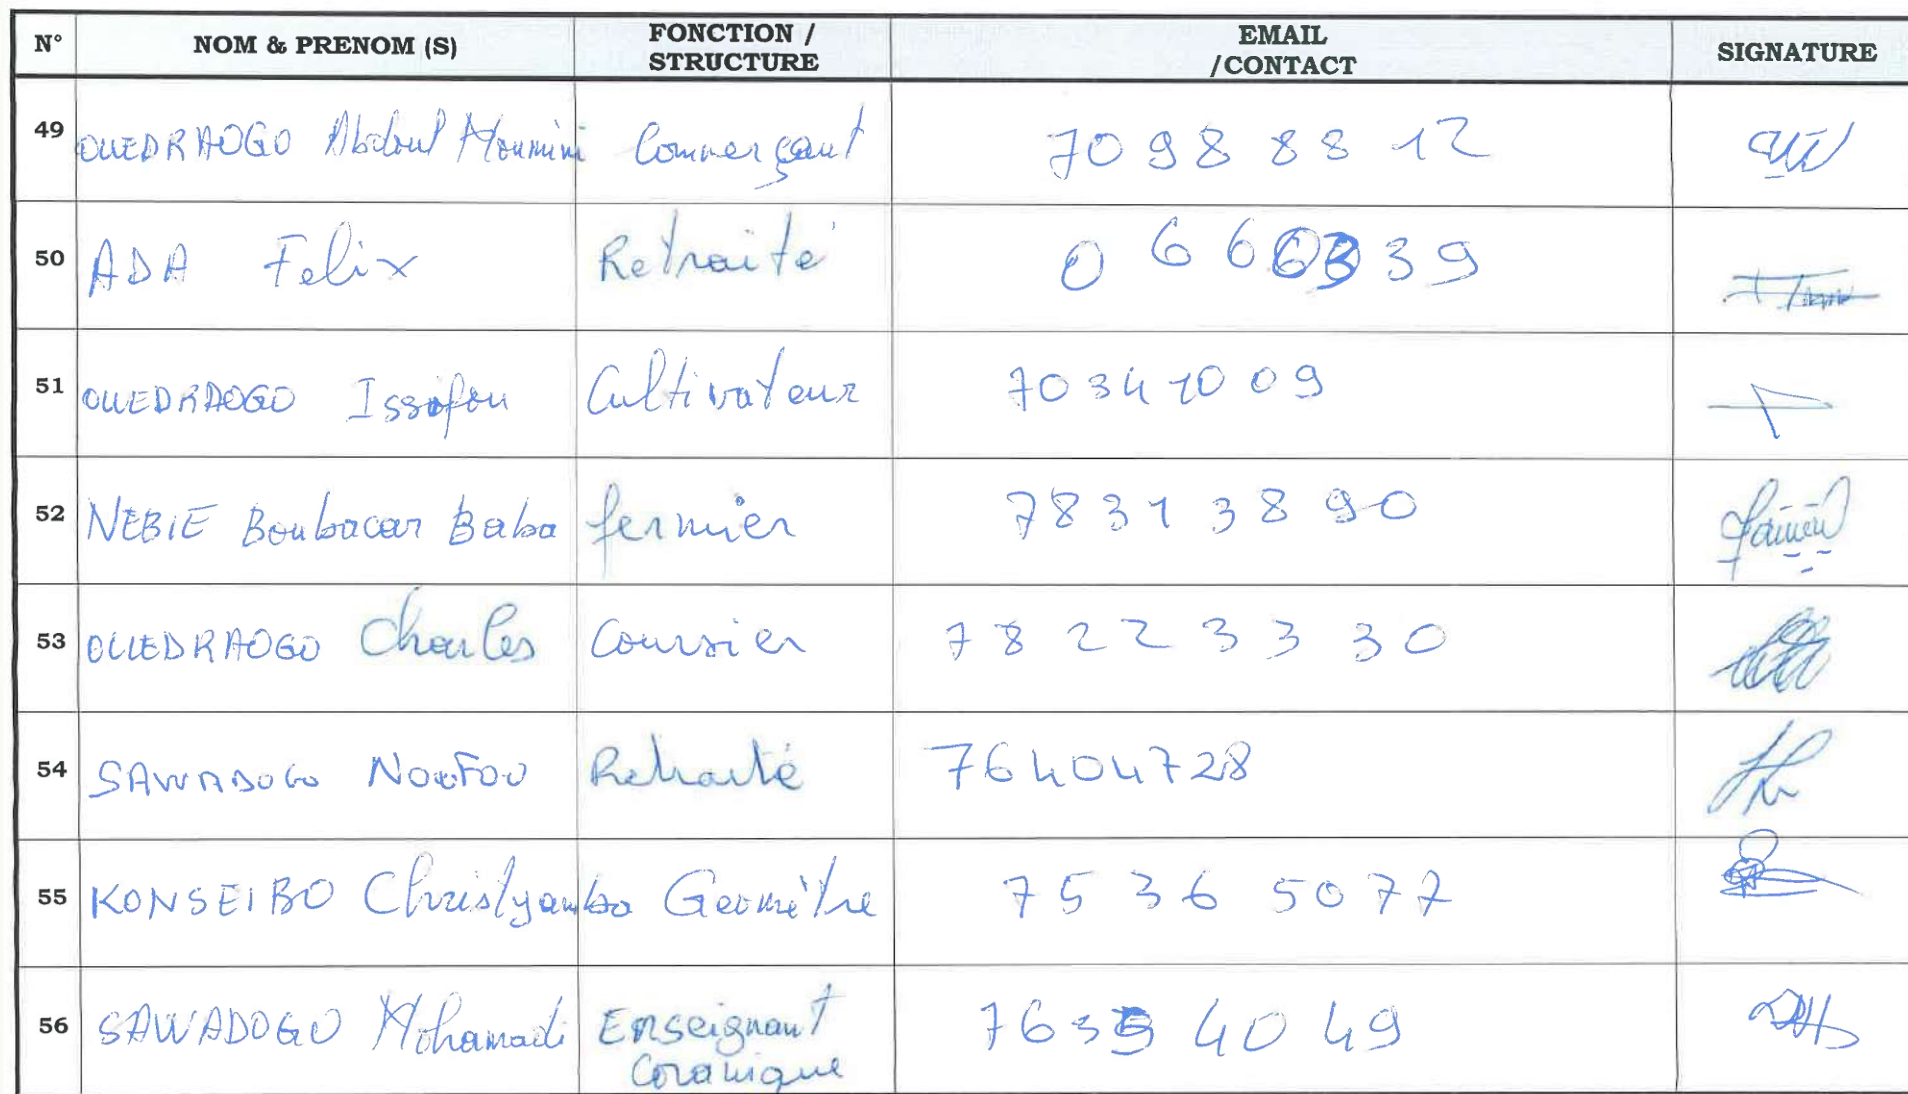 N° NOM & PRENOM (S) FONCTION / STRUCTURE EMAIL /CONTACT SIGNATURE
49 OUEDRAOGO Abdoul Moumini Commerçant 70 98 88 12
50 ADA Felix Retraité 0 6 6 39
51 OUEDRAOGO Issofou Cultivateur 70 34 10 09
52 NEBIE Boubacar Baba fermier 78 31 38 90
53 OUEDRAOGO Charles Coursier 78 22 33 30
54 SAWADOGO NOUFOU Retraité 76404728
55 KONSEIBO Christyamba Geomètre 75 36 5077
56 SAWADOGO Mohamadi Enseignant
Coranique 7635 40 49